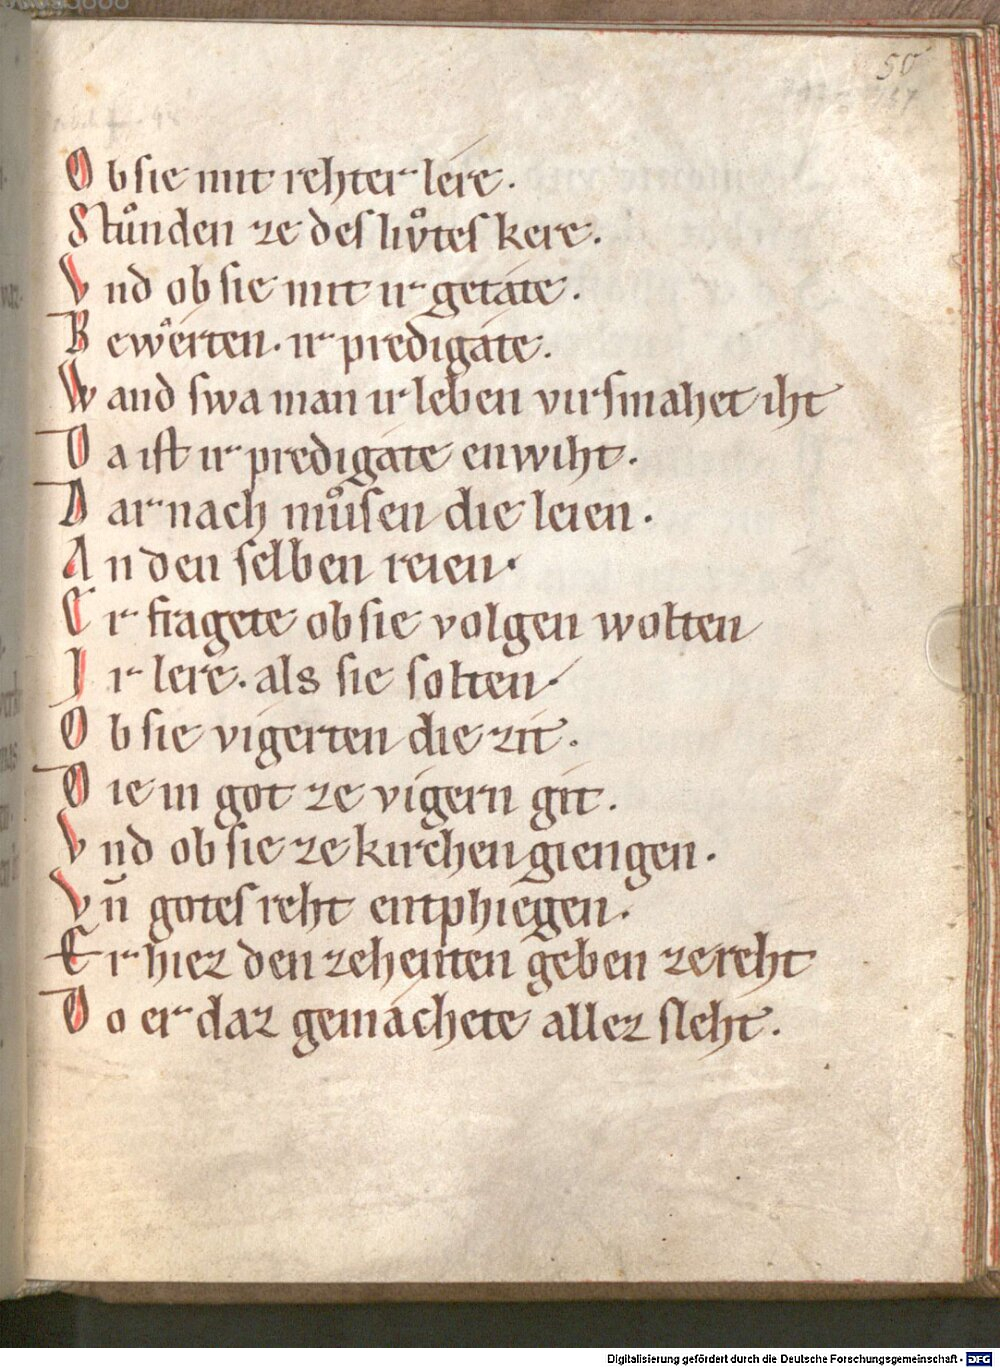 50
Ob sie mit rehter lere.
Stuͦnden ze des livͦtes kere.
Vnd ob sie mit ir getate.
Bewêrten. ir predigate.
Wand swa man ir leben virsmahet iht
Da ist ir predigate enwiht.
Dar nach muͦsen die leien.
An den selben reien.
Er fragete ob sie volgen wolten
Ir lere. als sie solten.
Ob sie vigerten die zit.
Die in got ze vigern git.
Vnd ob sie ze kirchen giengen.
Vn̄ gotes reht entphiegen.
Er hiez den zehenten geben ze reht
Do er daz gemachete allez sleht.
Digitalisierung gefördert durch die Deutsche Forschungsgemeinschaft - DFG